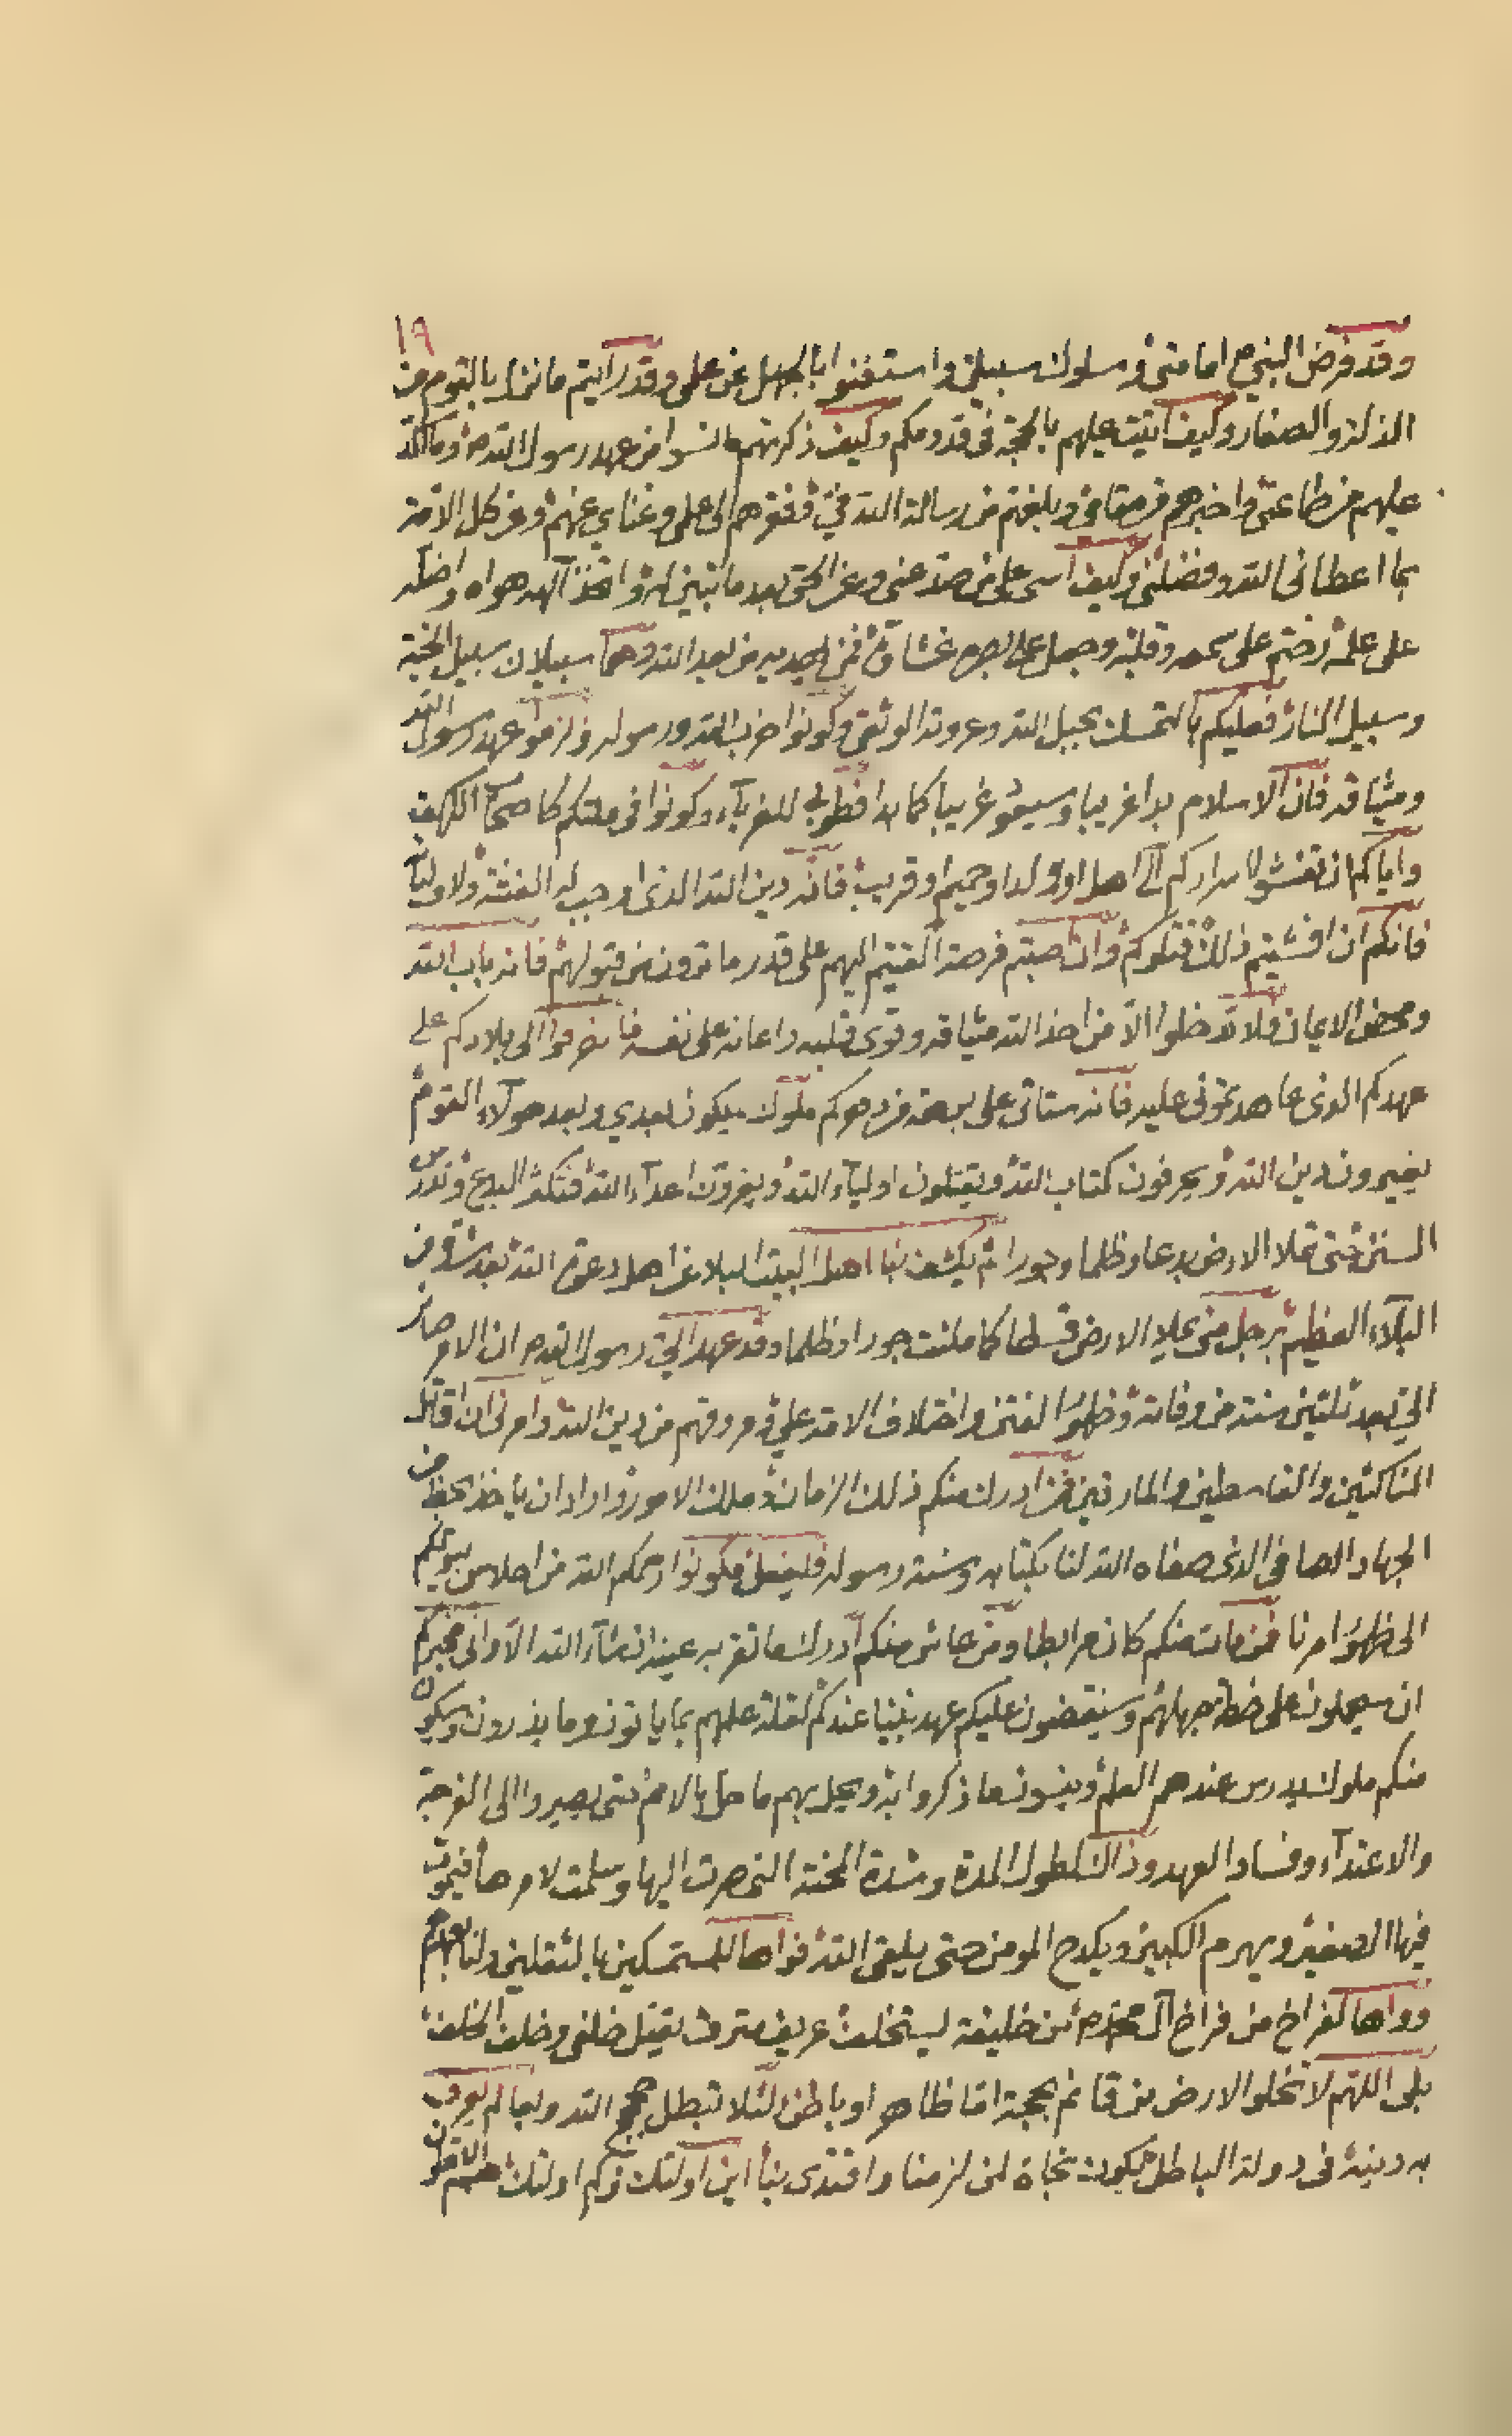 ١٩
وقد فرض النبي ص امامتي و سلوك سبيلي واستغنوا بالجهل عن علمي وقد رايتم ما نزل بالقوم من
الذلة والصغار وكيف اثبت عليهم بالحجة في قدومكم وكيف ذكرتهم ما نسوا من عهد رسول الله ص وما اكد
عليهم من طاعتي واخبرهم من مقامي وبلغتم من رسالة الله في وفقرهم الى علمي وغناي عنهم وعن كل الامة
بما اعطاني الله وفضلني وكيف اسى على من صد عني وعن الحق بعد ما تبين له واتخذ آلهه هواه واضله
على علم وختم على سمعه وقلبه وجعل على بصره غشاوة فمن يهديه من بعد الله وهما سبيلان سبيل الجنة
وسبيل النار فعليكم بالتمسك بحبل الله وعروته الوثقى وكونوا حزب الله ورسوله والزموا عهد رسول الله
وميثاقه فان الاسلام بدا غريبا وسيعود غريبا كما بدا فطوبى للغرباء وكونوا في ملتكم كاصحاب الكهف
واياكم ان تفشوا اسراركم الى اهل او ولد او حميم او قريب فانه دين الله الذي اوجب له التقية ولاوليائه
فانكم ان افشيتم ذلك قتلوكم وان اصبتم فرصة القيتم اليهم على قدر ما ترون من قبولهم فانه باب الله
ومحض الايمان ولا تدخلوا الا من اخذ الله ميثاقه وقوى قلبه واعانه على نفسه فانصرفوا الى بلادكم على
عهدكم الذي عاهدتموني عليه فانه ستاتي على برهة من دهركم ملوك يكون بعدي وبعد هولاء القوم
يغيرون دين الله ويحرفون كتاب الله ويقتلون اولياء الله ويعزون اعداء الله فتكثر البدع وتدرس
السنن حتى تملا الارض بدعا وظلما وجورا ثم يكشف بنا اهل البيت البلا عن اهل دعوة الله بعد شدة من
البلاء العظيم برجل مني يملا الارض قسطا كما ملئت جورا وظلما وقد عهد الي رسول الله ص ان الامر صائر
الي بعد ثلثين سنة من وفاته وظهور الفتن واختلاف الامة علي ومروقهم من دين الله وامرني ان اقاتل
الناكثين والقاسطين والمارقين فمن ادرك منكم ذلك الزمان وملك الامور واراد ان ياخذ بحظ من
الجهاد الصافي الذي صفاه الله لنا بكتابه وسنة رسوله فليفعل فكونوا رحمكم الله من احلاس بيوتكم
الى ظهور امرنا فمن مات منكم كان مرابطا ومن عاش منكم ادرك ما تقر به عينه ان شاء الله الا واني مخبركم
ان سيحملون على خطة جهلهم وسينقضون عليكم عهد نبينا عندكم لقلة علمهم بما ياتون وما يذرون وسيكون
منكم ملوك يدرس عندهم العلم وينسون ما ذكروا به ويحل بهم ما حل بالامم حتى يصيروا الى الفرجة
والاعتداء وفساد العهد وذاك لطول المدة وشدة المحنة التي صرت اليها وسلمت لامرها فيموت
فيها الصغير ويهرم الكبير ويكدح المومن حتى يلقى الله فواها للمستمسكين بالثقلين ولنا بعهدهم
وواها لفراخ من فراخ آل محمد ص من خليفة يستخلف عريف مترف يقتل خلفي وخلف الخلف
بلى اللهم لا تخلوا الارض من قائم بحجة اما ظاهر او باطن لئلا تبطل حجج الله ولما لم يعرف
به دينه في دولة الباطل يكون نجاة لمن لزمنا واقتدى بنا اين اولئك وكم اولئك هم الاقلون